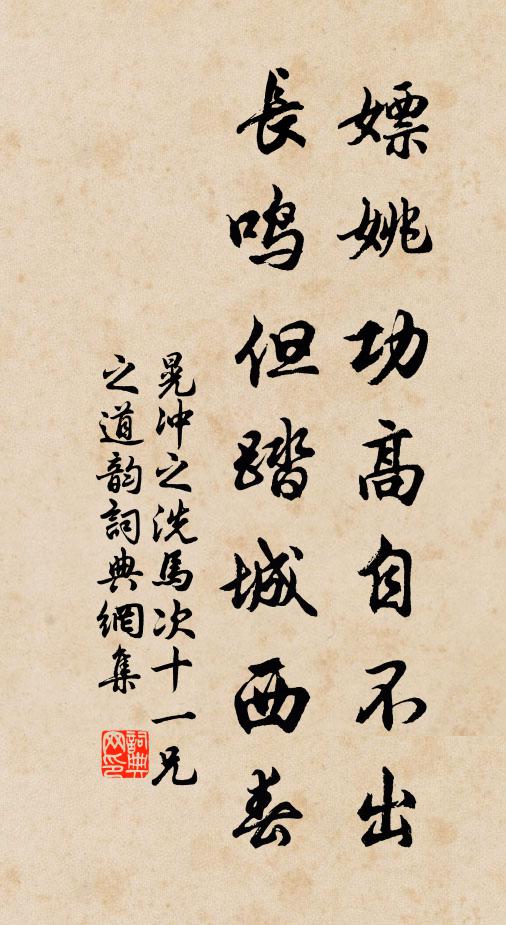 嫖姚功高自不出
長鳴但踏城西春
晁冲之洗馬次十一兄
之道韵詞典網集
詞典網印